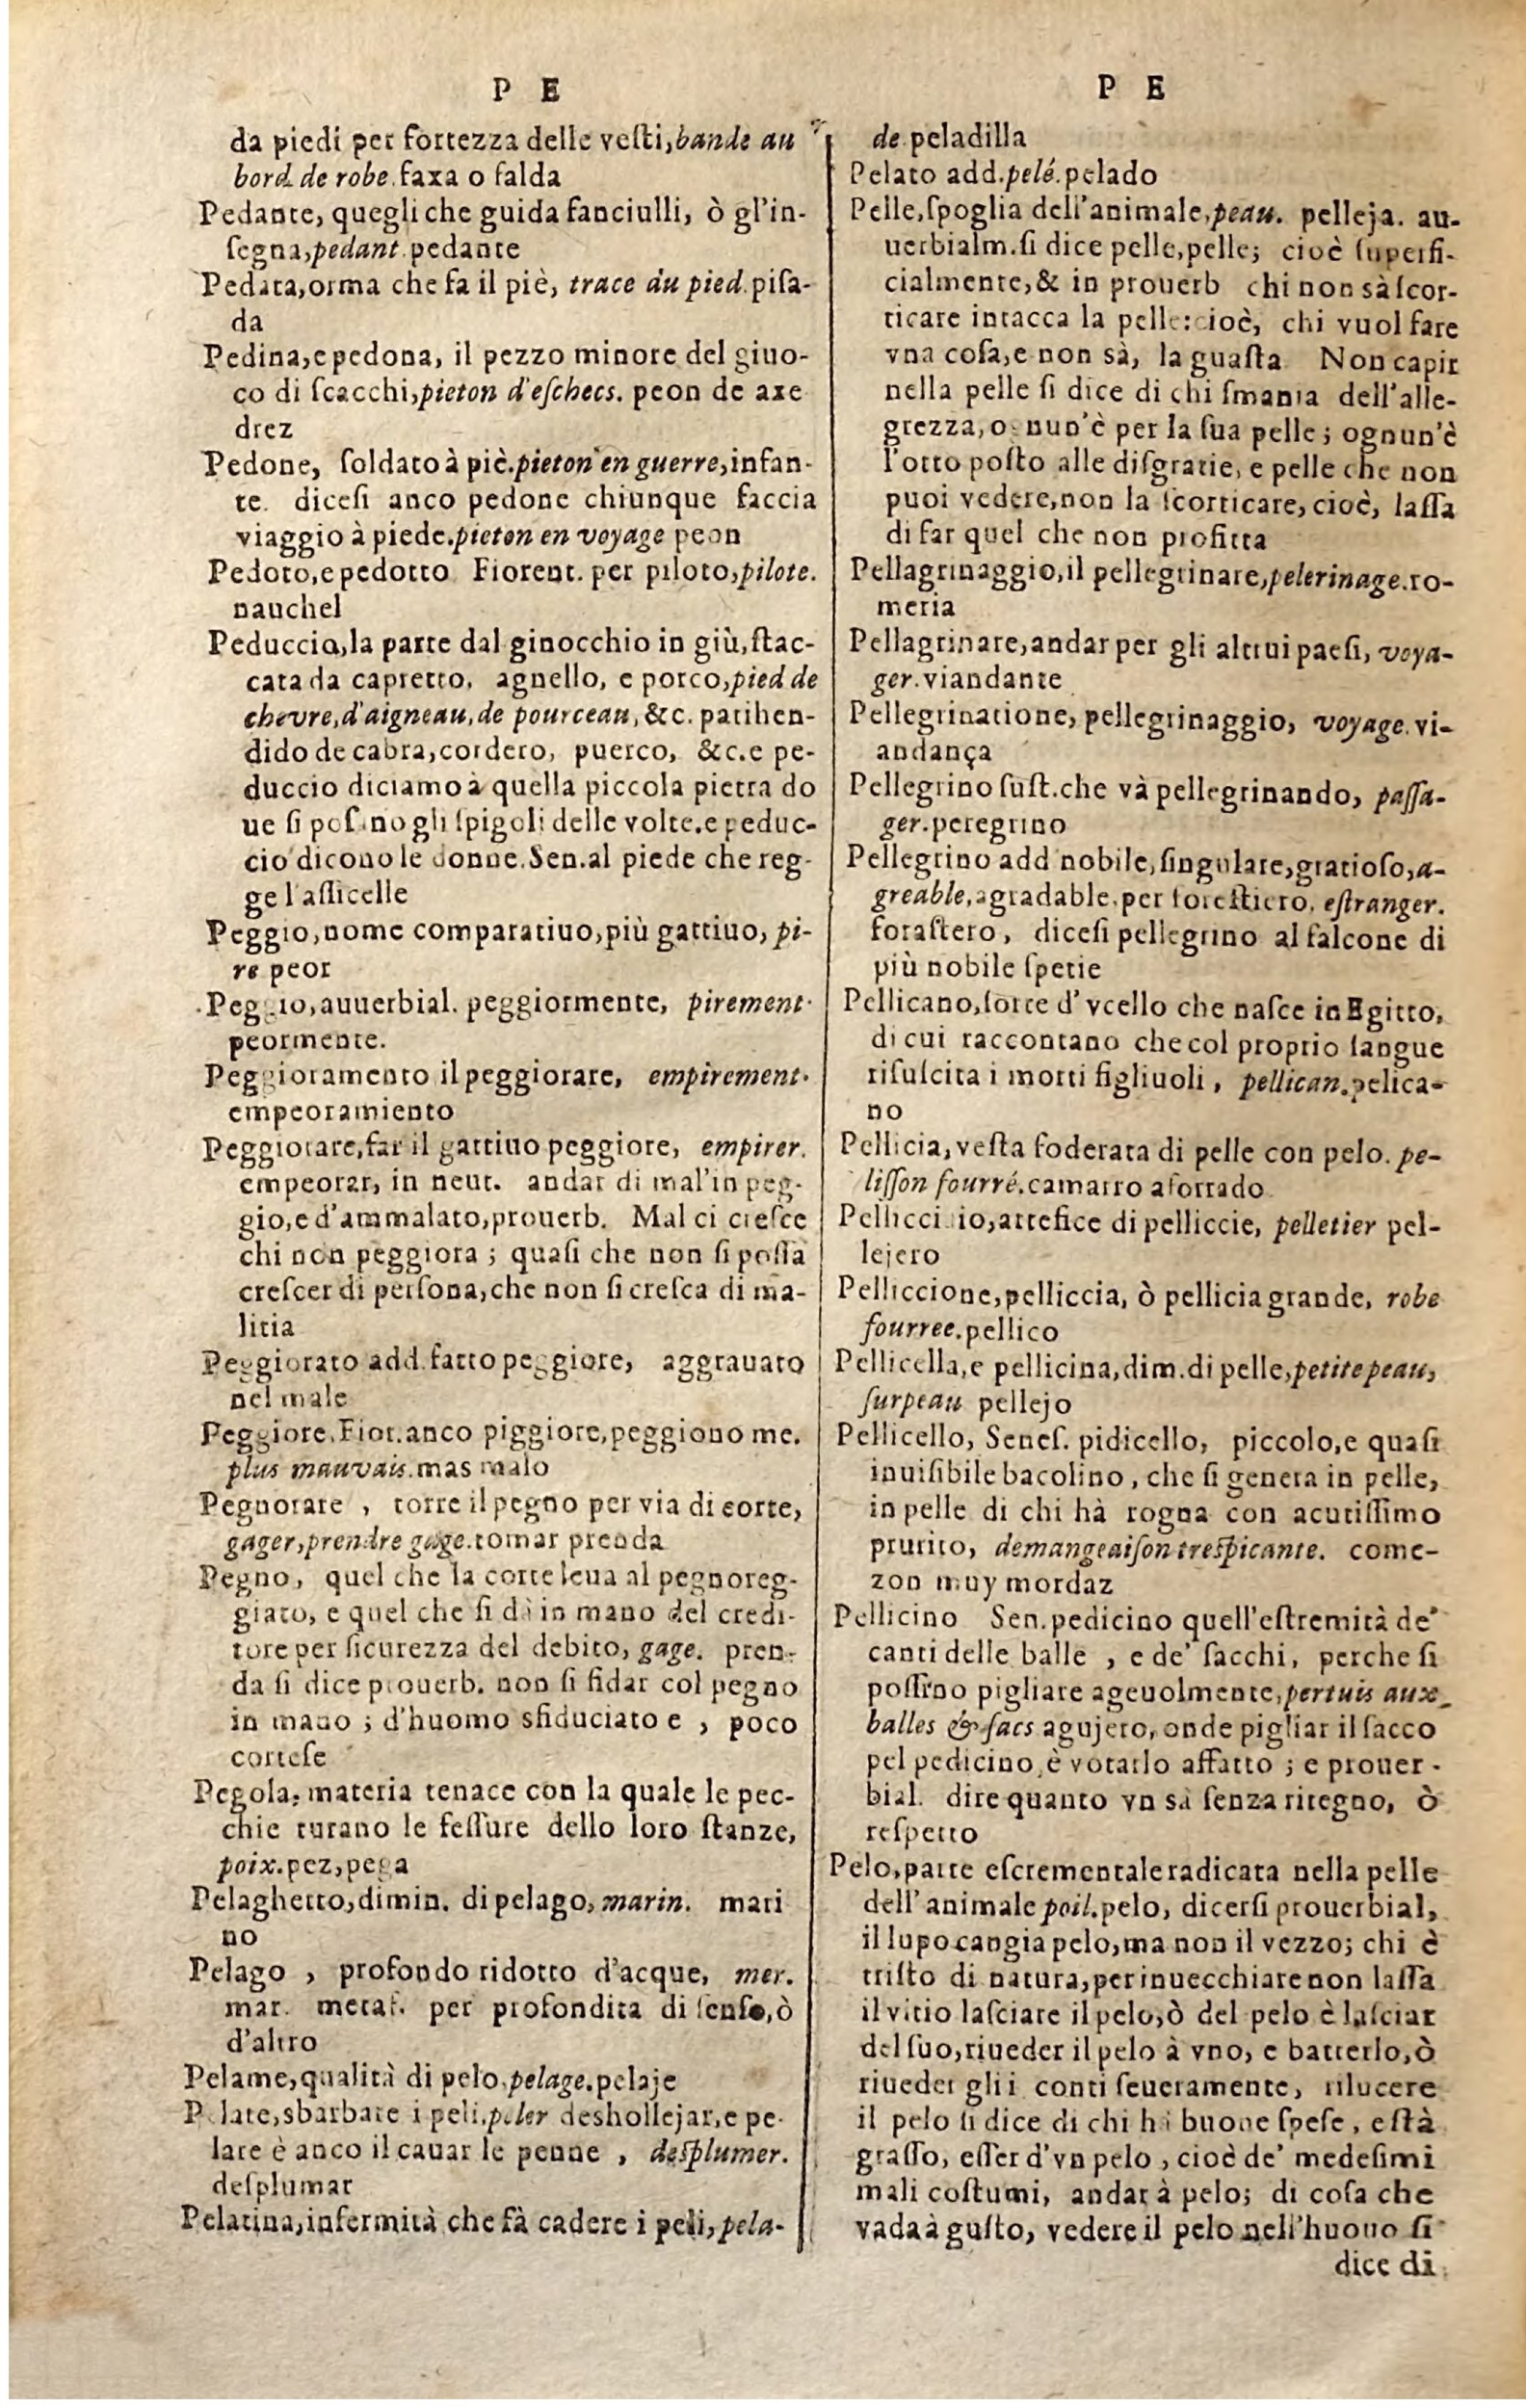 P E
da piedi per fortezza delle veſti, bande au
bord de robe. faxa o falda
Pedante, quegli che guida fanciulli, ò gl'in-
ſegna, pedant. pedante
Pedata, orma che fa il piè, trace du pied. piſa-
da
Pedina, e pedona, il pezzo minore del giuo-
co di ſcacchi, pieton d'eſchecs. peon de axe
drez
Pedone, ſoldato à piè. pieton en guerre, infan-
te. diceſi anco pedone chiunque faccia
viaggio à piede. pieton en voyage peon
Pedoto, e pedotto Fiorent. per piloto, pilote.
nauchel
Peduccio, la parte dal ginocchio in giù, ſtac-
cata da capretto, agnello, e porco, pied de
chevre, d'aigneau, de pourceau, &c. patihen-
dido de cabra, cordero, puerco, &c. e pe-
duccio diciamo à quella piccola pietra do
ue ſi poſano gli ſpigoli delle volte. e peduc-
cio dicono le donne. Sen. al piede che reg-
ge l'aſticelle
Peggio, nome comparatiuo, più gattiuo, pi-
re peor
Peggio, auuerbial. peggiormente, pirement.
peormente.
Peggioramento il peggiorare, empirement.
empeoramiento
Peggiorare, far il gattiuo peggiore, empirer.
empeorar, in neut. andar di mal'in peg-
gio, e d'ammalato, prouerb. Mal ci creſce
chi non peggiora ; quaſi che non ſi poſſa
creſcer di perſona, che non ſi creſca di ma-
litia
Peggiorato add. fatto peggiore, aggrauato
nel male
Peggiore. Fior. anco piggiore, peggiono me.
plus mauvais. mas malo
Pegnorare , torre il pegno per via di corte,
gager, prendre gage. tomar prenda
Pegno, quel che la corte leua al pegnoreg-
giato, e quel che ſi dà in mano del credi-
tore per ſicurezza del debito, gage. pren-
da ſi dice prouerb. non ſi fidar col pegno
in mano ; d'huomo sfiduciato e , poco
corteſe
Pegola, materia tenace con la quale le pec-
chie turano le feſſure dello loro ſtanze,
poix. pez, pega
Pelaghetto, dimin. di pelago, marin. mari
no
Pelago , profondo ridotto d'acque, mer.
mar. metaf. per profondita di ſenſo, ò
d'altro
Pelame, qualità di pelo. pelage. pelaje
Pelare, sbarbare i peli. peler deshollejar, e pe-
lare è anco il cauar le penne , deſplumer.
deſplumar
Pelatina, infermità che fà cadere i peli, pela-
P E
de peladilla
Pelato add. pelé. pelado
Pelle, ſpoglia dell'animale, peau. pelleja. au-
uerbialm. ſi dice pelle, pelle; cioè ſuperfi-
cialmente, & in prouerb chi non sà ſcor-
ticare intacca la pelle: cioè, chi vuol fare
vna coſa, e non sà, la guaſta Non capir
nella pelle ſi dice di chi ſmania dell'alle-
grezza, ognun'è per la ſua pelle ; ognun'è
l'otto poſto alle diſgratie, e pelle che non
puoi vedere, non la ſcorticare, cioè, laſſa
di far quel che non profitta
Pellagrinaggio, il pellegrinare, pelerinage. ro-
meria
Pellagrinare, andar per gli altrui paeſi, voya-
ger. viandante
Pellegrinatione, pellegrinaggio, voyage. vi-
andança
Pellegrino ſuſt. che và pellegrinando, paſſa-
ger. peregrino
Pellegrino add nobile, ſingulare, gratioſo, a-
greable, agradable. per foreſtiero. eſtranger.
foraſtero, diceſi pellegrino al falcone di
più nobile ſpetie
Pellicano, ſorte d' vcello che naſce in Egitto,
di cui raccontano che col proprio ſangue
riſuſcita i morti figliuoli, pellican. pelica-
no
Pellicia, veſta foderata di pelle con pelo. pe-
liſſon fourré. camarro aforrado
Pellicciaio, artefice di pelliccie, pelletier pel-
lejero
Pelliccione, pelliccia, ò pellicia grande, robe
fourree. pellico
Pellicella, e pellicina, dim. di pelle, petite peau,
ſurpeau pellejo
Pellicello, Seneſ. pidicello, piccolo, e quaſi
inuiſibile bacolino, che ſi genera in pelle,
in pelle di chi hà rogna con acutiſſimo
prurito, demangeaiſon treſpicante. come-
zon muy mordaz
Pellicino Sen. pedicino quell'eſtremità de'
canti delle balle , e de' ſacchi, perche ſi
poſſino pigliare ageuolmente, pertuis aux
balles & ſacs agujero, onde pigliar il ſacco
pel pedicino, è votarlo affatto ; e prouer-
bial. dire quanto vn sà ſenza ritegno, ò
reſpetto
Pelo, parte eſcrementale radicata nella pelle
dell'animale poil. pelo, dicerſi prouerbial,
il lupo cangia pelo, ma non il vezzo; chi è
triſto di natura, per inuecchiare non laſſa
il vitio laſciare il pelo, ò del pelo è laſciar
del ſuo, riueder il pelo à vno, e batterlo, ò
riueder gli i conti ſeueramente, rilucere
il pelo ſi dice di chi hà buone ſpeſe, e ſtà
graſſo, eſſer d'vn pelo, cioè de' medeſimi
mali coſtumi, andar à pelo; di coſa che
vada à guſto, vedere il pelo nell'huouo ſi
dice di